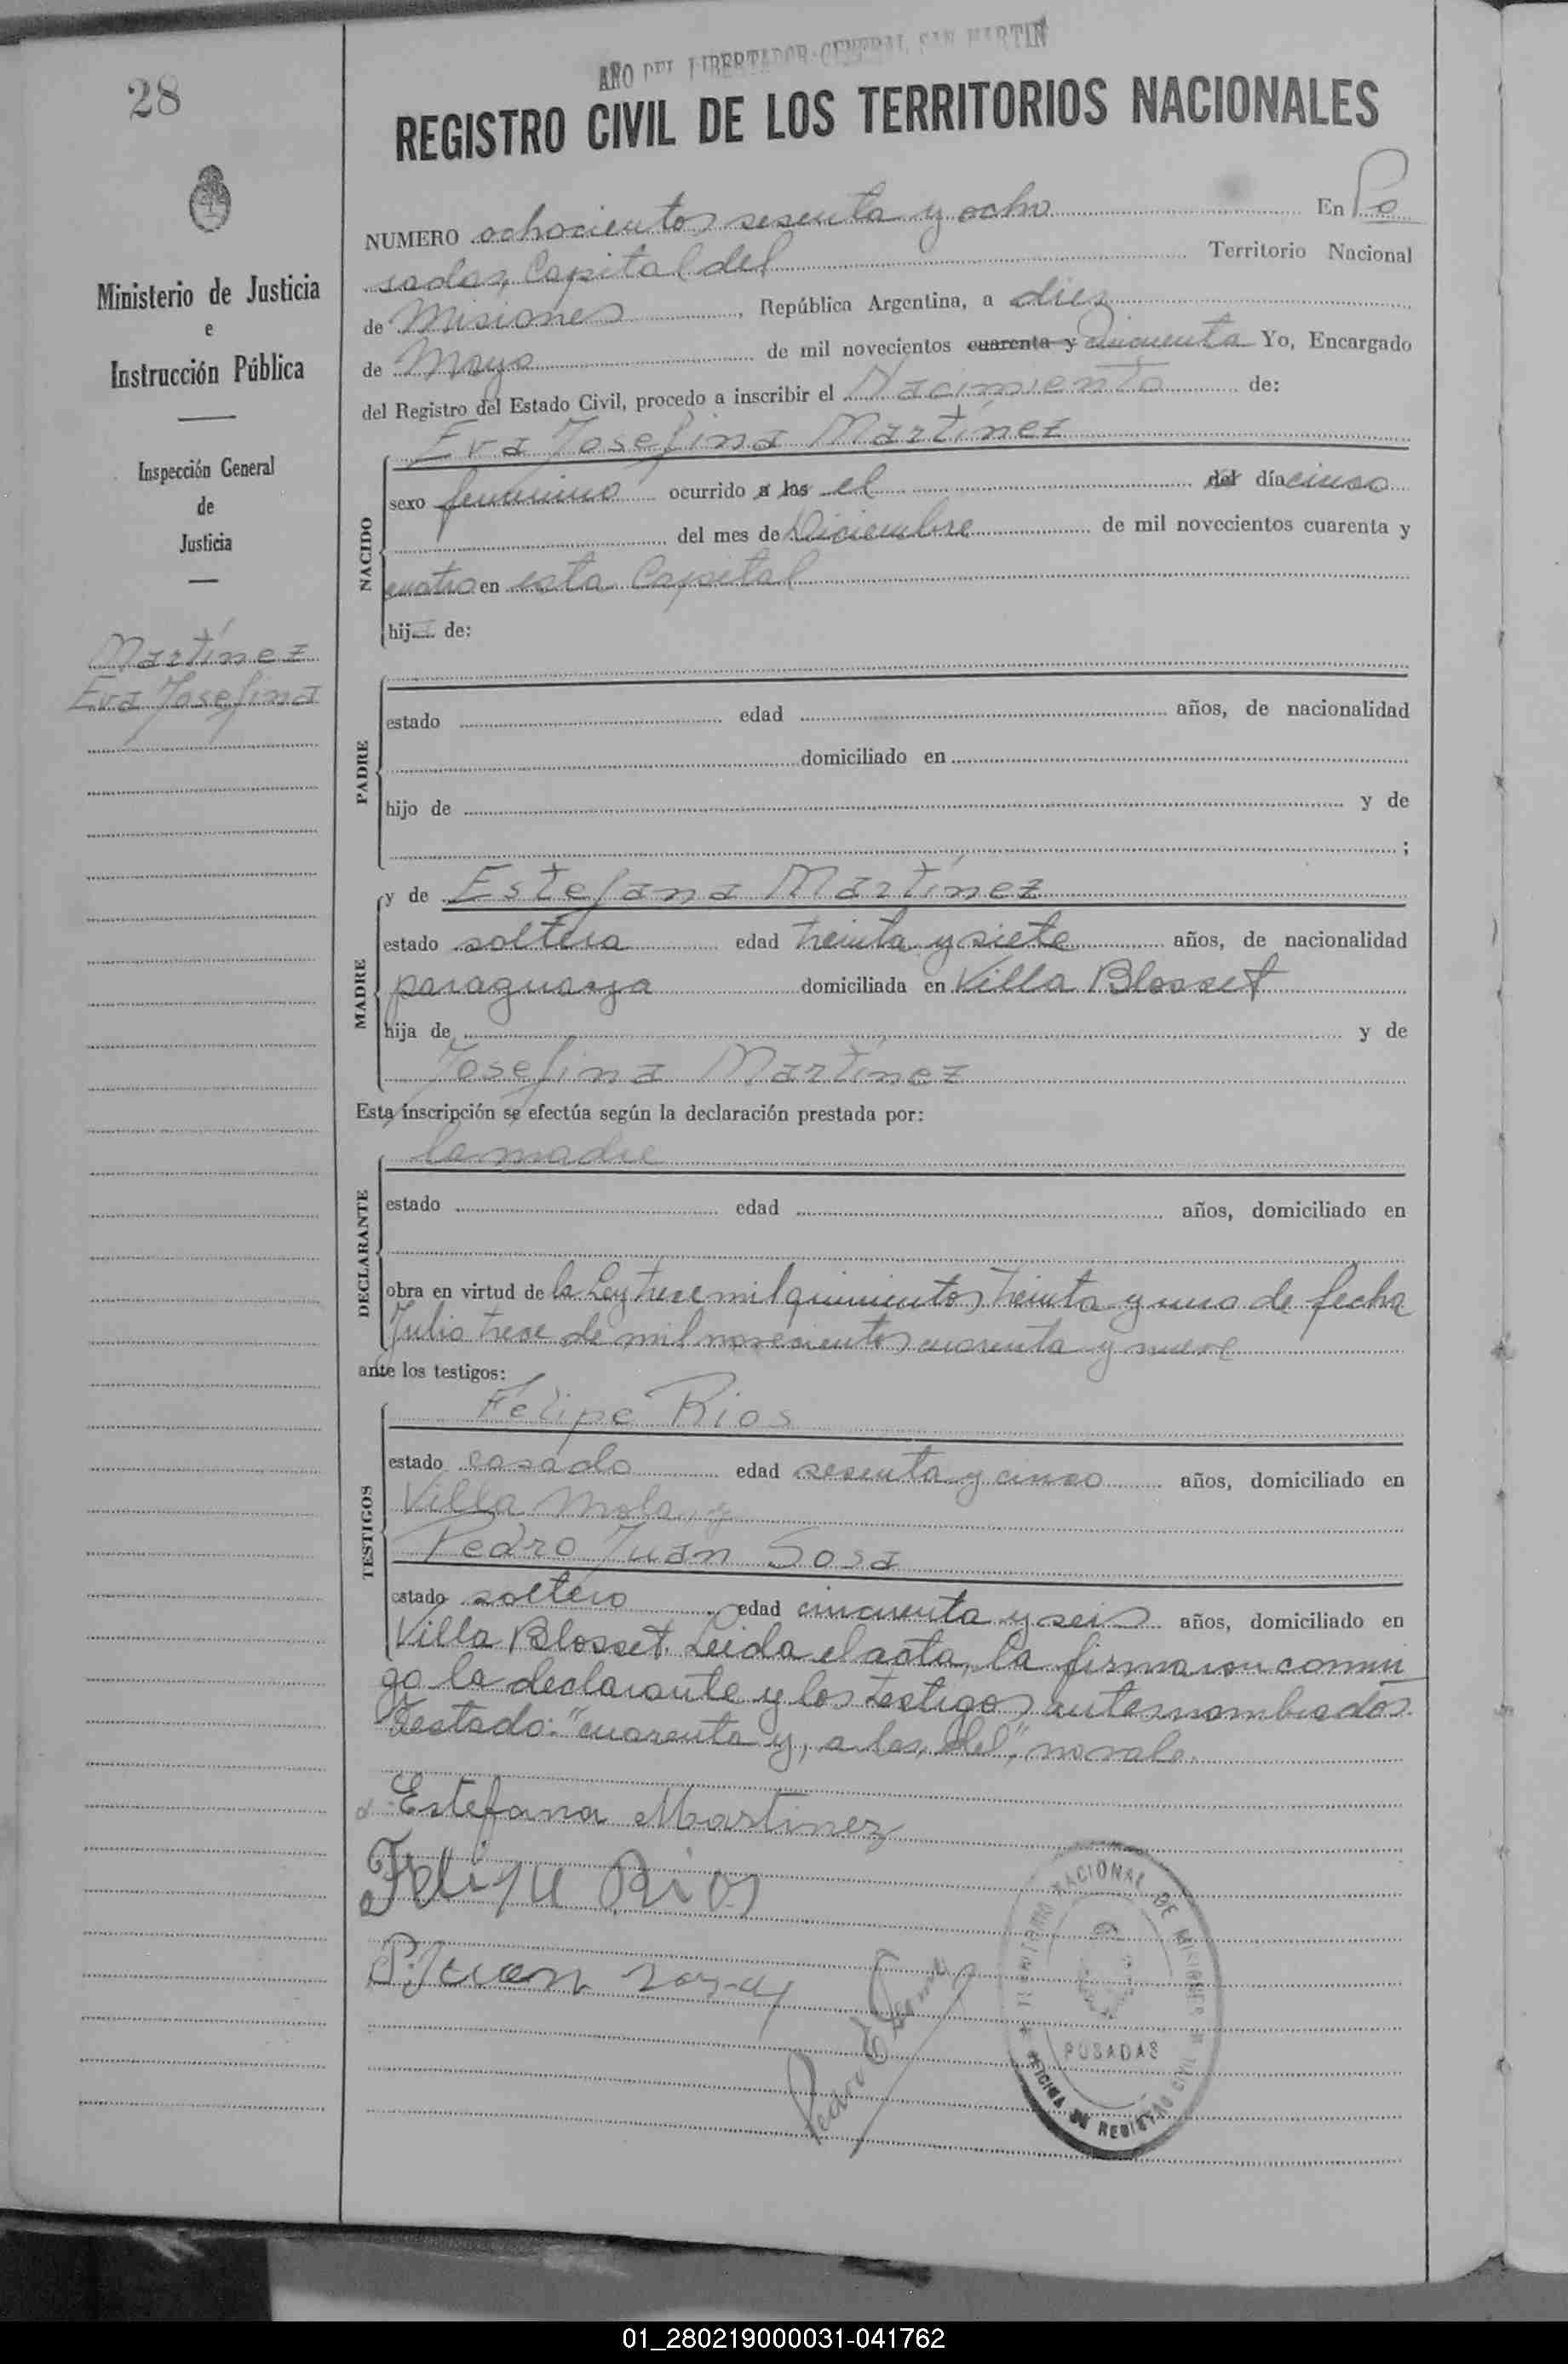 AÑO DEL LIBERTADOR GENERAL SAN MARTIN
28
REGISTRO CIVIL DE LOS TERRITORIOS NACIONALES
Ministerio de Justicia
e
Instrucción Pública
Inspección General
de
Justicia
Martínez
Eva Josefina
NUMERO ochocientos sesenta y ocho En Po
sadas, Capital del Territorio Nacional
de Misiones, República Argentina, a diez
de Mayo de mil novecientos cuarenta y cincuenta Yo, Encargado
del Registro del Estado Civil, procedo a inscribir el Nacimiento de:
Eva Josefina Martínez
NACIDO
sexo femenino ocurrido a las el del día cinco
del mes de Diciembre de mil novecientos cuarenta y
cuatro en esta Capital
hij de:
PADRE
estado edad años, de nacionalidad
domiciliado en
hijo de y de
;
MADRE
y de Estefana Martínez
estado soltera edad treinta y siete años, de nacionalidad
paraguaya domiciliada en Villa Blosset
hija de y de
Josefina Martínez
Esta inscripción se efectúa según la declaración prestada por:
la madre
DECLARANTE
estado edad años, domiciliado en
obra en virtud de la Ley trece mil quinientos treinta y uno de fecha
Julio trece de mil novecientos cuarenta y nueve
ante los testigos:
Felipe Rios
TESTIGOS
estado casado edad sesenta y cinco años, domiciliado en
Villa Mola, y
Pedro Juan Sosa
estado soltero edad cincuenta y seis años, domiciliado en
Villa Blosset. Leida el acta, la firmaron conmi
go la declarante y los testigos antesnombrados.
Testado: "cuarenta y, a las, del", no vale.
Estefana Martinez
Felipe Rios
P. Juan Sosa
Pedro E
TERRITORIO NACIONAL DE MISIONES
POSADAS
OFICINA DE REGISTRO CIVIL
01_280219000031-041762